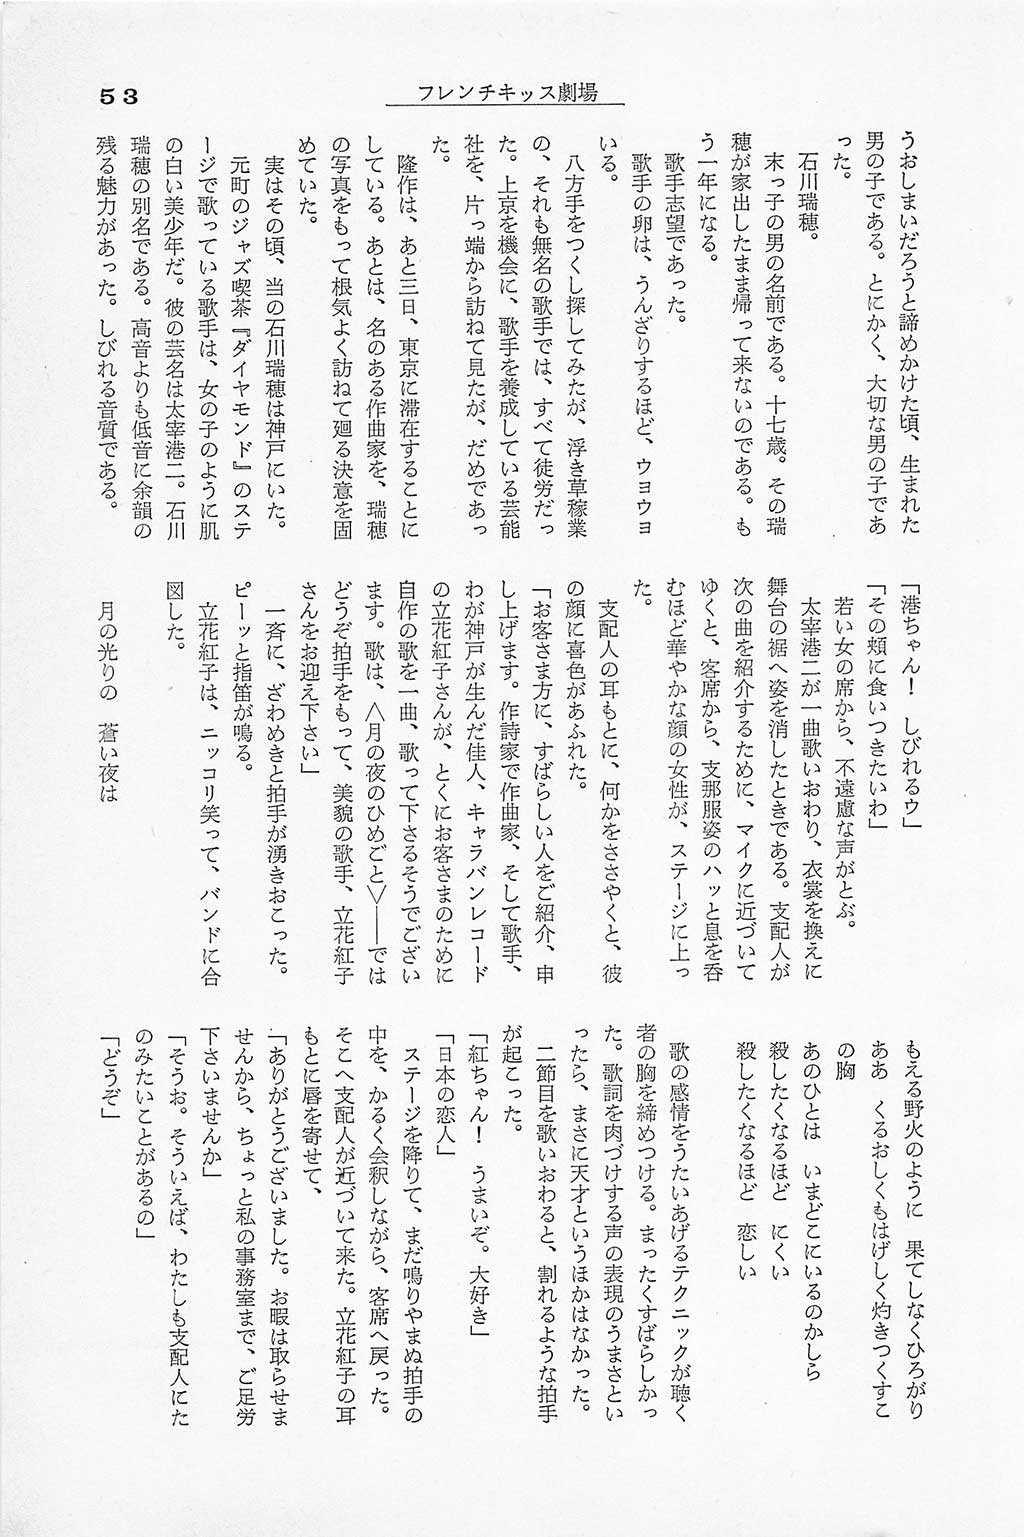 53
フレンチキッス劇場
うおしまいだろうと諦めかけた頃、生まれた
男の子である。とにかく、大切な男の子であ
った。
石川瑞穂。
末っ子の男の名前である。十七歳。その瑞
穂が家出したまま帰って来ないのである。も
う一年になる。
歌手志望であった。
歌手の卵は、うんざりするほど、ウヨウヨ
いる。
八方手をつくし探してみたが、浮き草稼業
の、それも無名の歌手では、すべて徒労だっ
た。上京を機会に、歌手を養成している芸能
社を、片っ端から訪ねて見たが、だめであっ
た。
隆作は、あと三日、東京に滞在することに
している。あとは、名のある作曲家を、瑞穂
の写真をもって根気よく訪ねて廻る決意を固
めていた。
実はその頃、当の石川瑞穂は神戸にいた。
元町のジャズ喫茶『ダイヤモンド』のステ
ージで歌っている歌手は、女の子のように肌
の白い美少年だ。彼の芸名は太宰港二。石川
瑞穂の別名である。高音よりも低音に余韻の
残る魅力があった。しびれる音質である。
「港ちゃん！　しびれるウ」
「その頬に食いつきたいわ」
若い女の席から、不遠慮な声がとぶ。
太宰港二が一曲歌いおわり、衣裳を換えに
舞台の裾へ姿を消したときである。支配人が
次の曲を紹介するために、マイクに近づいて
ゆくと、客席から、支那服姿のハッと息を呑
むほど華やかな顔の女性が、ステージに上っ
た。
支配人の耳もとに、何かをささやくと、彼
の顔に喜色があふれた。
「お客さま方に、すばらしい人をご紹介、申
し上げます。作詩家で作曲家、そして歌手、
わが神戸が生んだ佳人、キャラバンレコード
の立花紅子さんが、とくにお客さまのために
自作の歌を一曲、歌って下さるそうでござい
ます。歌は、〈月の夜のひめごと〉――では
どうぞ拍手をもって、美貌の歌手、立花紅子
さんをお迎え下さい」
一斉に、ざわめきと拍手が湧きおこった。
ピーッと指笛が鳴る。
立花紅子は、ニッコリ笑って、バンドに合
図した。
月の光りの　蒼い夜は
もえる野火のように　果てしなくひろがり
ああ　くるおしくもはげしく灼きつくすこ
の胸
あのひとは　いまどこにいるのかしら
殺したくなるほど　にくい
殺したくなるほど　恋しい
歌の感情をうたいあげるテクニックが聴く
者の胸を締めつける。まったくすばらしかっ
た。歌詞を肉づけする声の表現のうまさとい
ったら、まさに天才というほかはなかった。
二節目を歌いおわると、割れるような拍手
が起こった。
「紅ちゃん！　うまいぞ。大好き」
「日本の恋人」
ステージを降りて、まだ鳴りやまぬ拍手の
中を、かるく会釈しながら、客席へ戻った。
そこへ支配人が近づいて来た。立花紅子の耳
もとに唇を寄せて、
「ありがとうございました。お暇は取らせま
せんから、ちょっと私の事務室まで、ご足労
下さいませんか」
「そうお。そういえば、わたしも支配人にた
のみたいことがあるの」
「どうぞ」